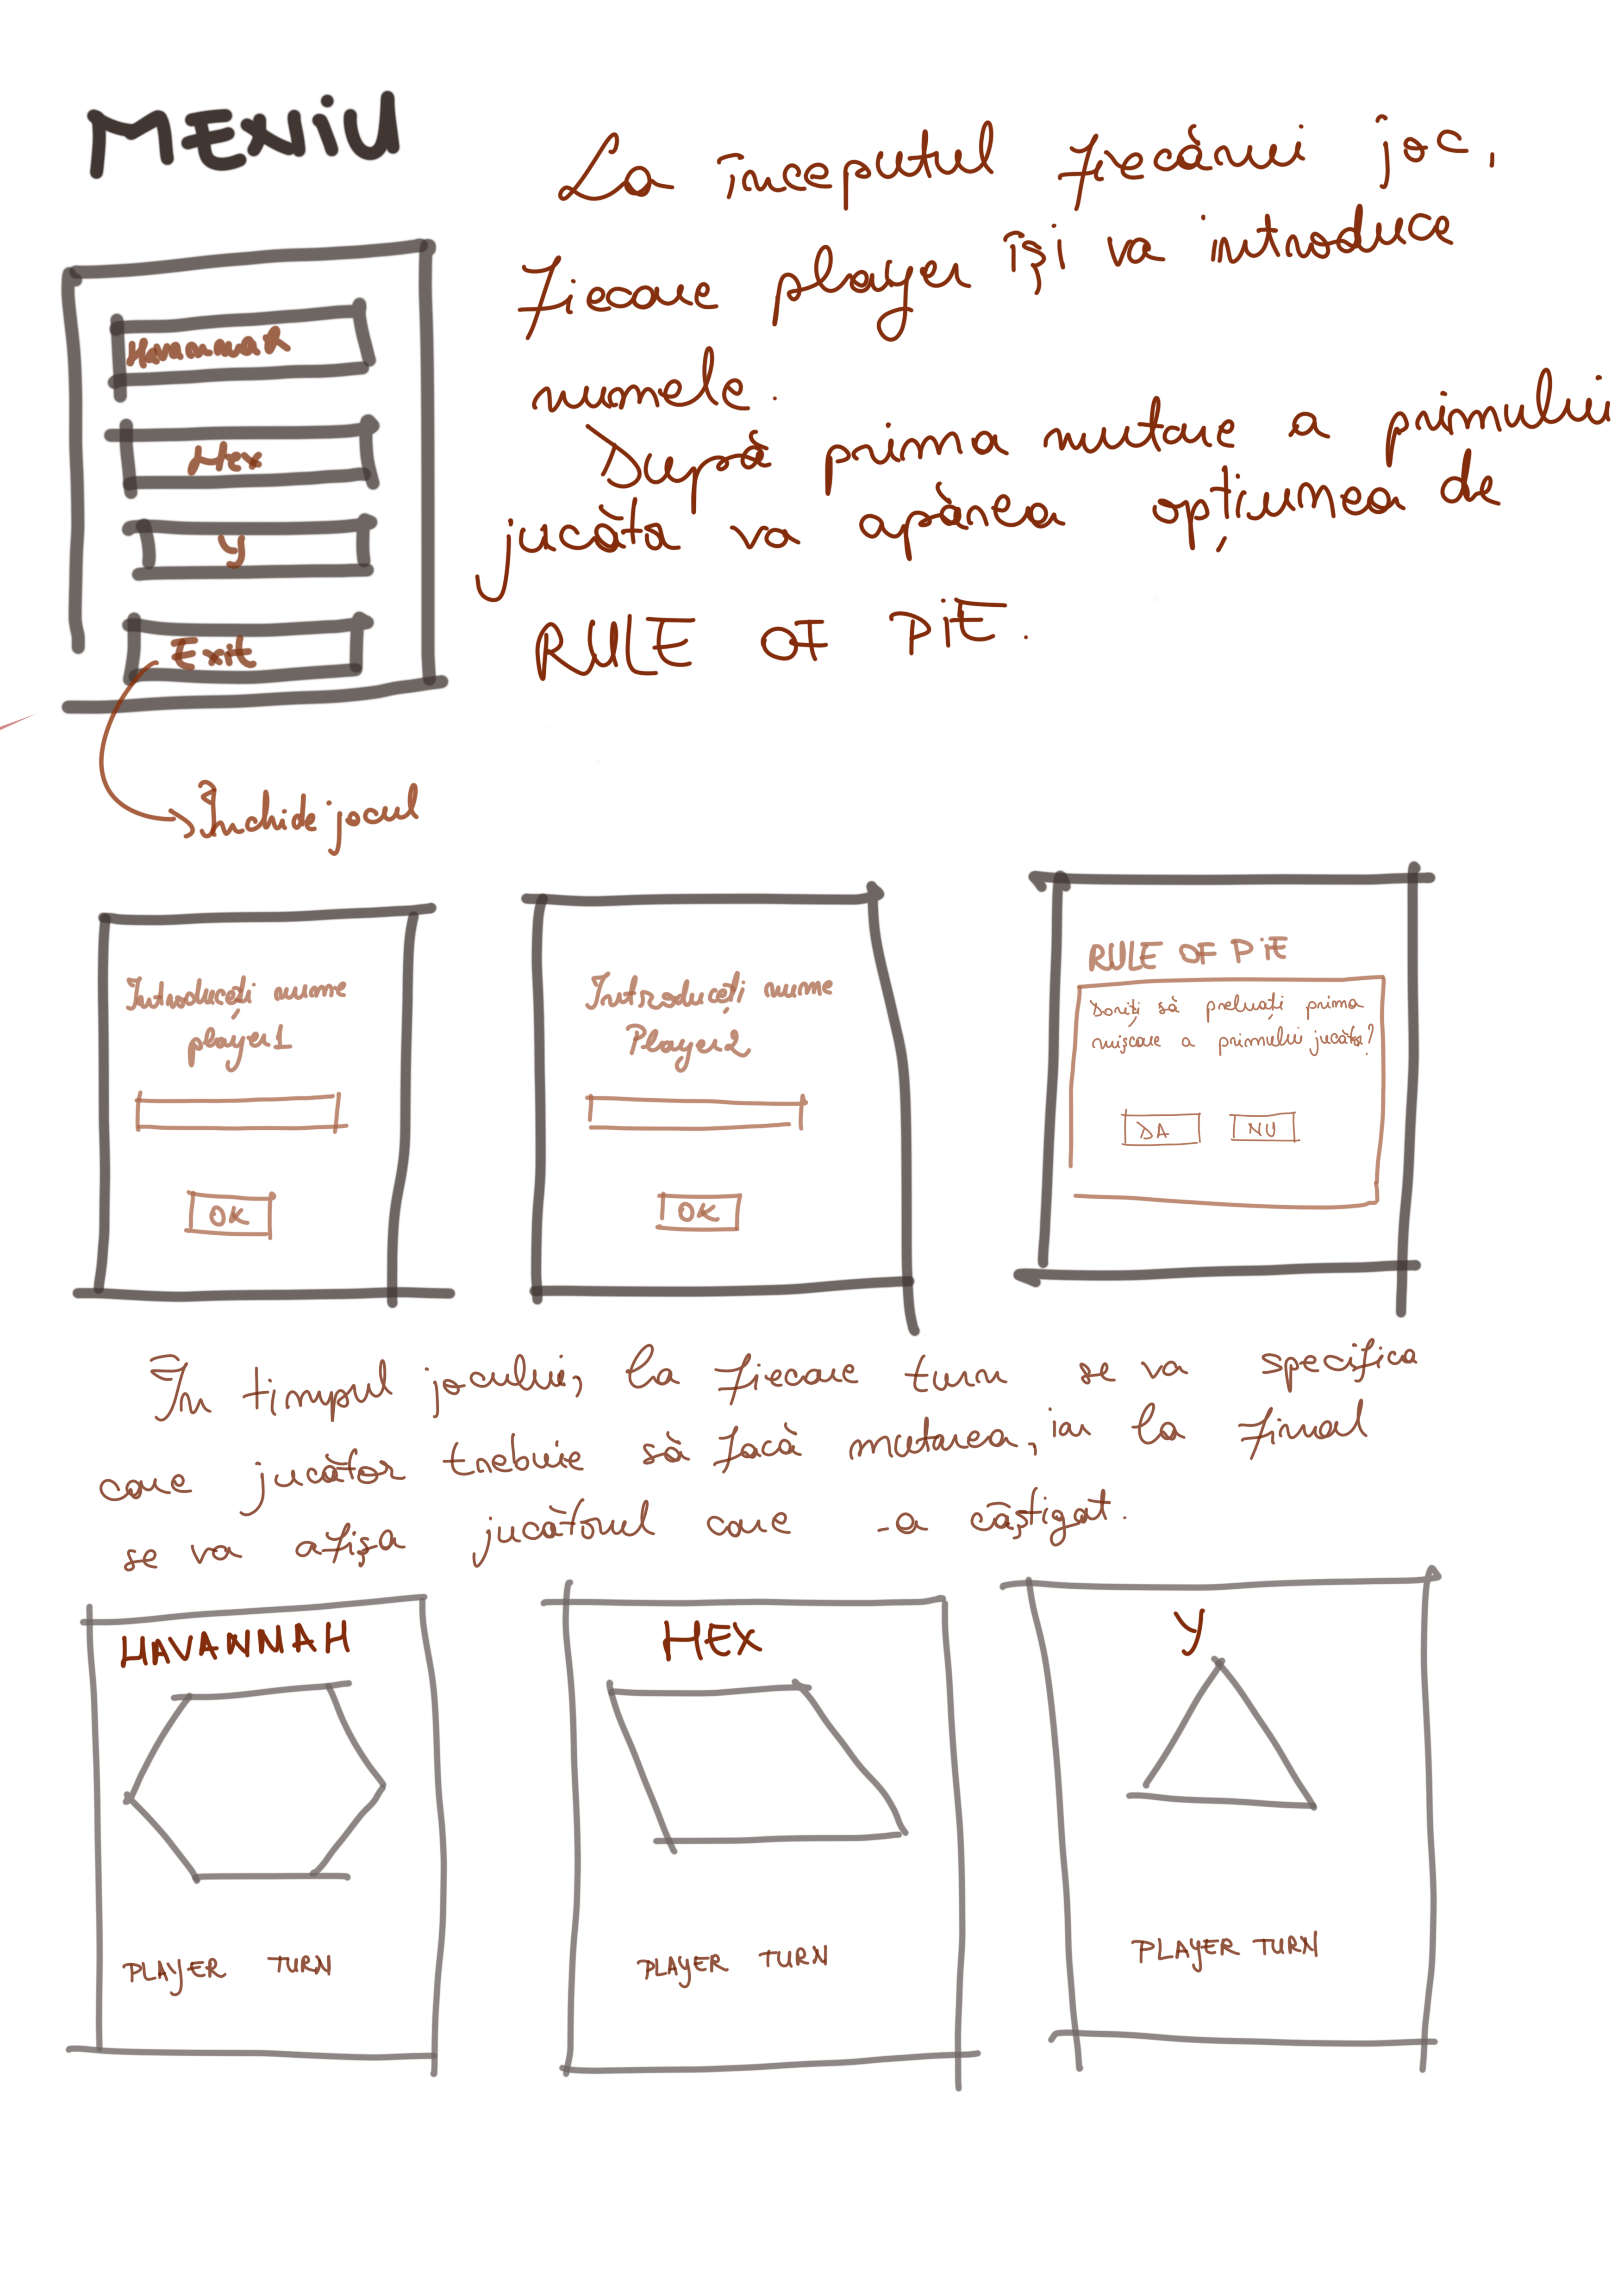 MENiU
La începutul fiecărui joc,
fiecare player îsi va introduce
numele.
După prima mutare a primului
jucăto va apărea opțiunea de
RULE OF PiE.
Havannah
Hex
y
Exit
Închide jocul
Introduceți nume
player1
OK
Introduceți nume
Player2
OK
RULE OF PiE
Doriți să preluați prima
mișcare a primului jucăto?
DA
NU
În timpul jocului, la fiecare turn se va specifica
care jucător trebuie să facă mutarea, iar la final
se va afișa jucătorul care -a câștigat.
HAVANNAH
PLAYER TURN
HEX
PLAYER TURN
y
PLAYER TURN